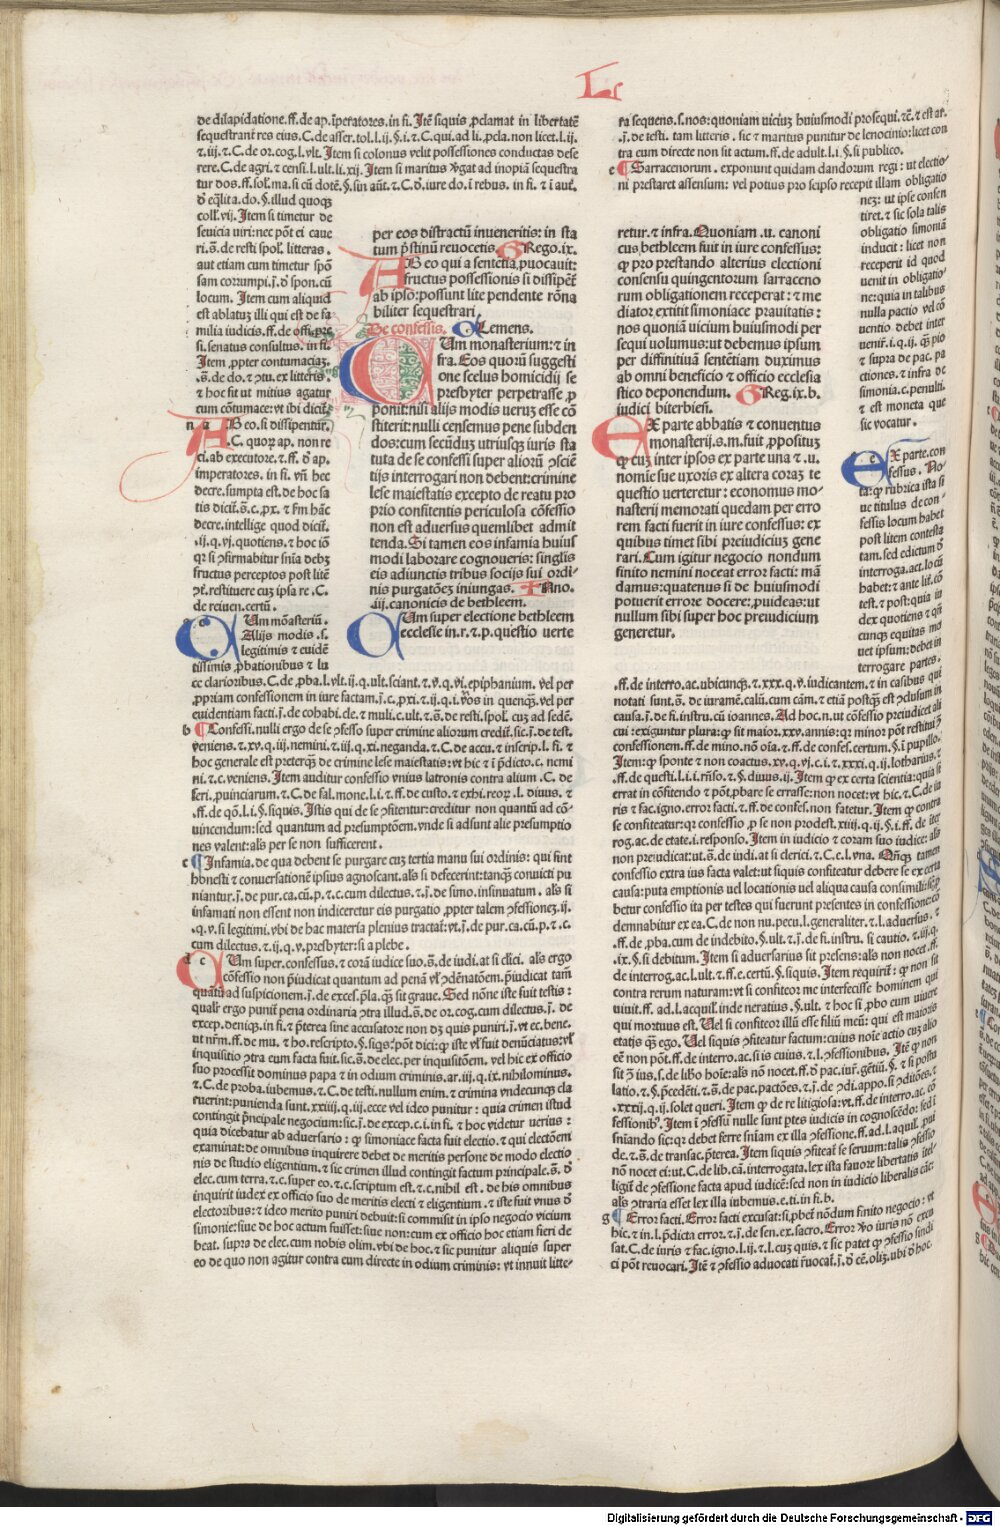 L
de dilapidatione. ff. de ap. īperatores. in fi. Itē siquis ꝓclamat in libertatē
sequestrant res eius. C. de asser. tol. l. ij. §. i. ⁊ C. qui. ad li. ꝓcla. non licet. l. ij.
⁊. iij. ⁊ C. de or. cog. l. vlt. Item si colonus velit possessiones conductas dese
rere. C. de agri. ⁊ censi. l. ult. li. xij. Item si maritus v̄gat ad inopiā sequestra
tur dos. ff. sol. ma. si cū dotē. §. sin aūt. ⁊ C. d̄. iure do. ī rebus. in fi. ⁊ ī autē.
d̄ eq̄lita. do. §. illud quoqꝫ
coll. vij. Item si timetur de
seuicia uiri: nec pōt ei caue
ri. s̄. de resti spol. litteras.
aut etiam cum timetur spō
sam corrumpi. j. d̄ spon. cū
locum. Item cum aliquid
est ablatuꝫ illi qui est de fa
milia iudicis. ff. de offi. pre
si. senatus consultus. in fi.
Item ꝓpter contumaciaꝫ.
s̄. de do. ⁊ ꝯtu. ex litteris.
⁊ hoc sit ut mitius agatur
cum cōtumace: vt ibi dicit̄.
n a AB eo. si dissipentur.
C. quoꝝ ap. non re
ci. ab executore. ⁊ ff. d̄ ap.
imperatores. in fi. vn̄ hec
decre. sumpta est. de hoc sa
tis dicit̄. s̄. c. ꝓx. ⁊ fm hāc
decre. intellige quod dicit̄.
ij. q. vj. quotiens. ⁊ hoc iō
qꝛ si ꝯfirmabitur snīa debꝫ
fructus perceptos post litē
ꝯt. restituere cuꝫ ipsa re. C.
de reiuen. certū.
a c CUm mōasteriū.
Alijs modis. s.
legitimis ⁊ euidē
tissimis ꝓbationibus ⁊ lu
ce clarioribus. C. de ꝓba. l. vlt. ij. q. ult. sciant. ⁊ v̄. q. vj. epiphanium. vel per
ꝓpriam confessionem in iure factam. j. c. pxi. ⁊ ij. q. i. ꝟo̅s in quenqꝫ. vel per
euidentiam facti. j. de cohabi. de. ⁊ muli. c. ult. ⁊ s̄. de resti. spol. cuꝫ ad sedē.
b ¶ Confessi. nulli ergo de se ꝯfesso super crimine aliorum credit̄. sic. j. de test.
veniens. ⁊. xv. q. iij. nemini. ⁊ iij. q. xi. neganda. ⁊ C. de accu. ⁊ inscrip. l. fi. ⁊
hoc generale est preterqꝫ de crimine lese maiestatis: vt hic ⁊ ī p̄dicto. c. nemi
ni. ⁊ c. veniens. Item auditur confessio vnius latronis contra alium. C. de
feri. ꝓuinciarum. ⁊ C. de fal. mone. l. i. ⁊ ff. de custo. ⁊ exhi. reoꝝ. l. diuus. ⁊
ff. de qō. l. i. §. siquis. Istis qui de se ꝯfitentur: creditur non quantū ad cō-
uincendum: sed quantum ad presumptōem. vnde si adsunt alie presumptio
nes valent: als per se non sufficerent.
c ¶ Infamia. de qua debent se purgare cuꝫ tertia manu sui ordinis: qui sint
honesti ⁊ conuersationē ipsius agnoscant. als si defecerint: tanqꝫ conuicti pu
niantur. j. de pur. ca. cū. p. ⁊. c. cum dilectus. ⁊. j. de simo. insinuatum. als si
infamati non essent non indiceretur eis purgatio ꝓpter talem ꝯfessioneꝫ. ij.
q. v. si legitimi. vbi de hac materia plenius tractat̄: vt. j. de pur. ca. cū. p. ⁊. c.
cum dilectus. ⁊ ij. q. v. presbyter: si a plebe.
d c CUm super. confessus. ⁊ corā iudice suo. s̄. de iudi. at si clici. als ergo
cōfessio non p̄iudicat quantum ad penā vl̓ ꝯdēnatōem. p̄iudicat tam̄
quātū ad suspicionem. j. de exces. p̄la. q̄ꝫ sit graue. Sed nōne iste fuit testis:
qualr̄ ergo punit̄ pena ordinaria ꝯtra illud. s̄. de or. cog. cum dilectus. j. de
excep. deniqꝫ. in fi. ⁊ p̄terea sine accusatore non dꝫ quis puniri. j. vt ec. bene.
ut nr̄m. ff. de mu. ⁊ ho. rescripto. §. siqs̄: pōt dici: ꝙ iste vl̓ fuit denūciatus: vl̓
inquisitio ꝯtra eum facta fuit. sic. s̄. de elec. per inquisitōem. vel hic ex officio
suo processit dominus papa ⁊ in odium criminis. ar. iij. q. ix. nihilominus.
⁊ C. de proba. iubemus. ⁊ C. de testi. nullum enim. ⁊ crimina vndecunqꝫ cla
ruerint: punienda sunt. xxiij. q. iij. ecce vel ideo punitur: quia crimen istud
contingit p̄ncipale negocium: sic. j. de excep. c. i. in fi. ⁊ hoc videtur verius:
quia dicebatur ab aduersario: ꝙ simoniace facta fuit electio. ⁊ qui electōem
examinat: de omnibus inquirere debet de meritis persone de modo electio
nis de studio eligentium. ⁊ sic crimen illud contingit factum principale. s̄. d̄
elec. cum terra. ⁊ c. super eo. ⁊ c. scriptum est. ⁊ c. nihil est. de his omnibus
inquirit iudex ex officio suo de meritis electi ⁊ eligentium. ⁊ iste fuit vnus d̄
electoribus: ⁊ ideo merito puniri debuit: si commisit in ipso negocio vicium
simonie: siue de hoc actum fuisset: siue non: cum ex officio hoc etiam fieri de
beat. supra de elec. cum nobis olim. vbi de hoc. ⁊ sic punitur aliquis super
eo de quo non agitur contra eum directe in odium criminis: vt innuit litte-
per eos distractū inueneritis: in sta
tum p̄stinū reuocetis. Grego. ix.
AB eo qui a sentētia ꝓuocauit:
fructus possessionis si dissipēt̄
ab ipso: possunt lite pendente rōna
biliter sequestrari.
De confessis. Clemens.
CUm monasterium: ⁊ in
fra. Eos quorū suggesti
one scelus homicidij se
presbyter perpetrasse ꝓ
ponit: nisi alijs modis veruꝫ esse cō
stiterit: nulli censemus pene subden
dos: cum secūduꝫ utriusqꝫ iuris sta
tuta de se confessi super alioruꝫ ꝯsciē
tijs interrogari non debent: crimine
lese maiestatis excepto de reatu pro
prio confitentis periculosa cōfessio
non est aduersus quemlibet admit
tenda. Si tamen eos infamia huius
modi laborare cognoueris: singlis
eis adiunctis tribus socijs sui ordi-
nis purgatōeꝫ iniungas. Inno.
iij. canonicis de bethleem.
CUm super electione bethleem
ecclesie in. r. ⁊. p. questio uerte
ra sequens. s. nos: quoniam uiciuꝫ huiusmodi prosequi. ⁊c̄. ⁊ est ar.
j. de testi. tam litteris. sic ⁊ maritus punitur de lenocinio: licet con
tra eum directe non sit actum. ff. de adult. l. i. §. si publico.
e ¶ Sarracenorum. exponunt quidam dandorum regi: ut electio-
ni prestaret assensum: vel potius pro seipso recepit illam obligatio
neꝫ: ut ipse consen
tiret. ⁊ sic sola talis
obligatio simoniā
inducit: licet non
receperit id quod
uenit in obligatio-
ne: quia in talibus
nulla pactio vel cō
uentio debet inter
uenir̄. i. q. ij. q̄ꝫ pio
⁊ supra de pac. pa
ctiones. ⁊ infra de
simonia. c. penulti.
⁊ est moneta que
sic vocatur.
retur. ⁊ infra. Quoniam. u. canoni
cus bethleem fuit in iure confessus:
ꝙ pro prestando alterius electioni
consensu quingentorum sarraceno
rum obligationem receperat: ⁊ me
diator extitit simoniace prauitatis:
nos quoniā uicium huiusmodi per
sequi uolumus: ut debemus ipsum
per diffinitiuā sentētiam duximus
ab omni beneficio ⁊ officio ecclesia
stico deponendum. Greg. ix. b.
iudici biterbiesi.
EX parte abbatis ⁊ conuentus
monasterij. s. m. fuit ꝓpositum
ꝙ cuꝫ inter ipsos ex parte una ⁊. u.
nomie sue uxoris ex altera coraꝫ te
questio uerteretur: economus mo-
nasterij memorati quedam per erro
rem facti fuerit in iure confessus: ex
quibus timet sibi preiudiciuꝫ gene
rari. Cum igitur negocio nondum
finito nemini noceat error facti: mā
damus: quatenus si de huiusmodi
potuerit errore docere: ꝓuideas: ut
nullum sibi super hoc preiudicium
generetur.
e EX parte. con
fessus. No-
ta: ꝙ rubrica ista si
ue titulus de con-
fessis locum habet
post litem contesta
tam. sed edictum d̄
interroga. act. locū
habet: ⁊ ante lit. cō
test. ⁊ post: quia iu
dex quotiens ⁊ qn̄
cunqꝫ equitas mo
uet ipsum: debet in
terrogare partes.
ff. de interro. ac. ubicunqꝫ. ⁊ xxx. q. v̄. iudicantem. ⁊ in casibus qui
notati sunt. s̄. de iuramē. calū. cum cām. ⁊ etiā postqꝫ est ꝯclusum in
causa. j. de fi. instru. cū ioannes. Ad hoc. n. ut cōfessio preiudicet ali
cui: exiguntur plura: ꝙ sit maior. xxv. annis: qꝛ minor pōt restitui ꝯ̄
confessionem. ff. de mino. nō oīa. ⁊ ff. de confes. certum. §. ī pupillo.
Item: ꝙ sponte ⁊ non coactus. xv. q. vj. c. i. ⁊ xxxi. q. ij. lotharius. ⁊
ff. de questi. l. i. i. rn̄so. ⁊ §. diuus. ij. Item ꝙ ex certa scientia: quia si
errat in cōfitendo ⁊ pōt. pbare se errasse: non nocet: vt hic. ⁊ C. de iu
ris ⁊ fac. igno. error facti. ⁊ ff. de confes. non fatetur. Item ꝙ contra
se confiteatur: qꝛ confessio. ꝓ se non prodest. xiiij. q. ij. §. i. ff. de iter
rog. ac. de etate. i. responso. Item in iudicio ⁊ coram suo iudice: als
non preiudicat: ut. s̄. de iudi. at si clerici. ⁊ C. e. l. vna. Qn̄qꝫ tamen
confessio extra ius facta valet: ut siquis confiteatur debere se ex certa
causa: puta emptionis uel locationis uel aliqua causa consimili: ꝓ
betur confessio ita per testes qui fuerunt presentes in confessione: cō
demnabitur ex ea. C. de non nu. pecu. l. generaliter. ⁊. l. aduersus. ⁊
ff. de. ꝓba. cum de indebito. §. ult. ⁊ j. de fi. instru. si cautio. ⁊. iij. q.
ix. §. si debitum. Item si aduersarius sit presens: als non nocet. ff.
de interrog. ac. l. ult. ⁊ ff. e. certū. §. siquis. Item requirit̄: ꝙ non sit
contra rerum naturam: vt si confiteor me interfecisse hominem qui
uiuit. ff. ad. l. acquil. inde neratius. §. ult. ⁊ hoc si ꝓbo eum uiuere
qui mortuus est. Uel si confiteor illū esse filiū meū: qui est maioris
etatis q̄ꝫ ego. Uel siquis ꝯfiteatur factum: cuius noīe actio cuꝫ alio
eē non pōt. ff. de interro. ac. si is cuius. ⁊ l. ꝯfessionibus. Itē ꝙ non
sit ꝯ̄ ius. s. de libo hoīe: als nō nocet. ff. d̄ pac. iur̄. gētiū. §. ⁊ si posta
latio. ⁊ §. p̄cedēti. ⁊. s̄. de pac. pactōes. ⁊ j. de ꝯdi. appo. si ꝯditōes. ⁊
xxxij. q. ij. solet queri. Item ꝙ de re litigiosa: vt. ff. de interro. ac. cō
fessionib̄. Item ī ꝯfessū nulle sunt ptes iudicis in cognoscēdo: sed ī
snīando sic: qꝛ debet ferre snīam ex illa ꝯfessione. ff. ad. l. aquil. ꝓut
de. ⁊. s̄. de transac. p̄terea. Item siquis ꝯfiteat̄ se seruum: talis ꝯfessio
nō nocet ei: ut. C. de lib. cā. interrogata. lex ista fauore libertatis itel
ligit̄ de ꝯfessione facta apud iudicē: sed non in iudicio liberalis cāe:
als ꝯtraria esset lex illa iubemus. e. ti. in fi. b.
g ¶ Error facti. Error facti excusat: si. pbet̄ nōdum finito negocio: vt
hic. ⁊ in l. p̄dicta error. ⁊. j. de sen. ex. sacro. Error ꝟo iuris nō excu
sat. C. de iuris ⁊ fac. igno. l. ij. ⁊. l. cuꝫ quis. ⁊ sic patet ꝙ ꝯfessio sindi
ci pōt reuocari. Itē ⁊ ꝯfessio aduocati r̄uocat̄. j. d̄ cē. oliꝫ. ubi d̄ hoc.
Digitalisierung gefördert durch die Deutsche Forschungsgemeinschaft - DFG